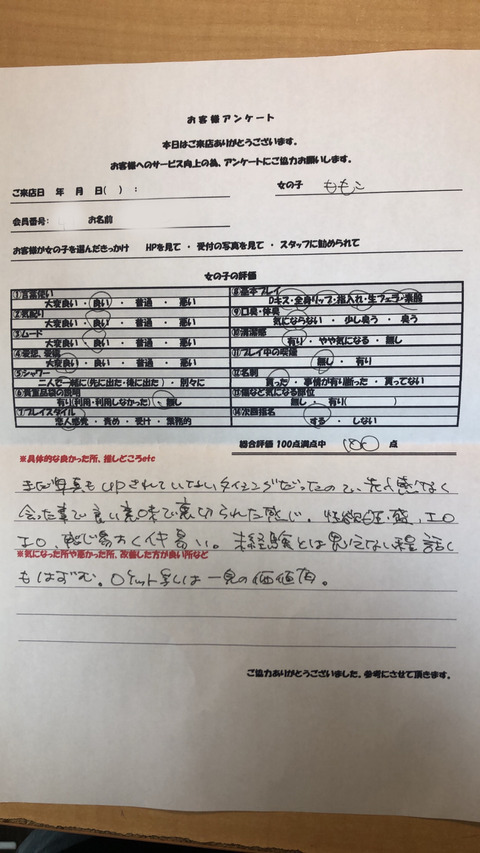 お客様アンケート
本日はご来店ありがとうございます。
お客様へのサービス向上の為、アンケートにご協力お願いします。
ご来店日 年 月 日( ) : 女の子 ももこ
会員番号: お名前
お客様が女の子を選んだきっかけ HPを見て ・ 受付の写真を見て ・ スタッフに勧められて
女の子の評価
①言葉使い
大変良い ・ 良い ・ 普通 ・ 悪い
②気配り
大変良い ・ 良い ・ 普通 ・ 悪い
③ムード
大変良い ・ 良い ・ 普通 ・ 悪い
④愛想、愛嬌
大変良い ・ 良い ・ 普通 ・ 悪い
⑤シャワー
二人で一緒に(先に出た・後に出た) ・ 別々に
⑥貴重品袋の説明
有り(利用・利用しなかった) ・ 無し
⑦プレイスタイル
恋人感覚 ・ 責め ・ 受け ・ 業務的
⑧基本プレイ
Dキス・全身リップ・指入れ・生フェラ・素股
⑨口臭・体臭
気にならない ・ 少し臭う ・ 臭う
⑩清潔感
有り ・ やや気になる ・ 無し
⑪プレイ中の喫煙
無し ・ 有り
⑫名刺
貰った ・ 事情が有り断った ・ 貰ってない
⑬傷など気になる部位
無し ・ 有り( )
⑭次回指名
する ・ しない
総合評価 100点満点中 100 点
※具体的な良かった所、推しどころetc
まだ写真もUPされていないタイミングだったので、先入感なく
会った事で良い意味で裏切られた感じ。性欲的、感、エロ
エロ、感じ易おく仲易い。未経験とは思えない程話し
※気になった所や悪かった所、改善した方が良い所など
もはずむ。ロケット乳は一見の価値有。
ご協力ありがとうございました、参考にさせて頂きます。